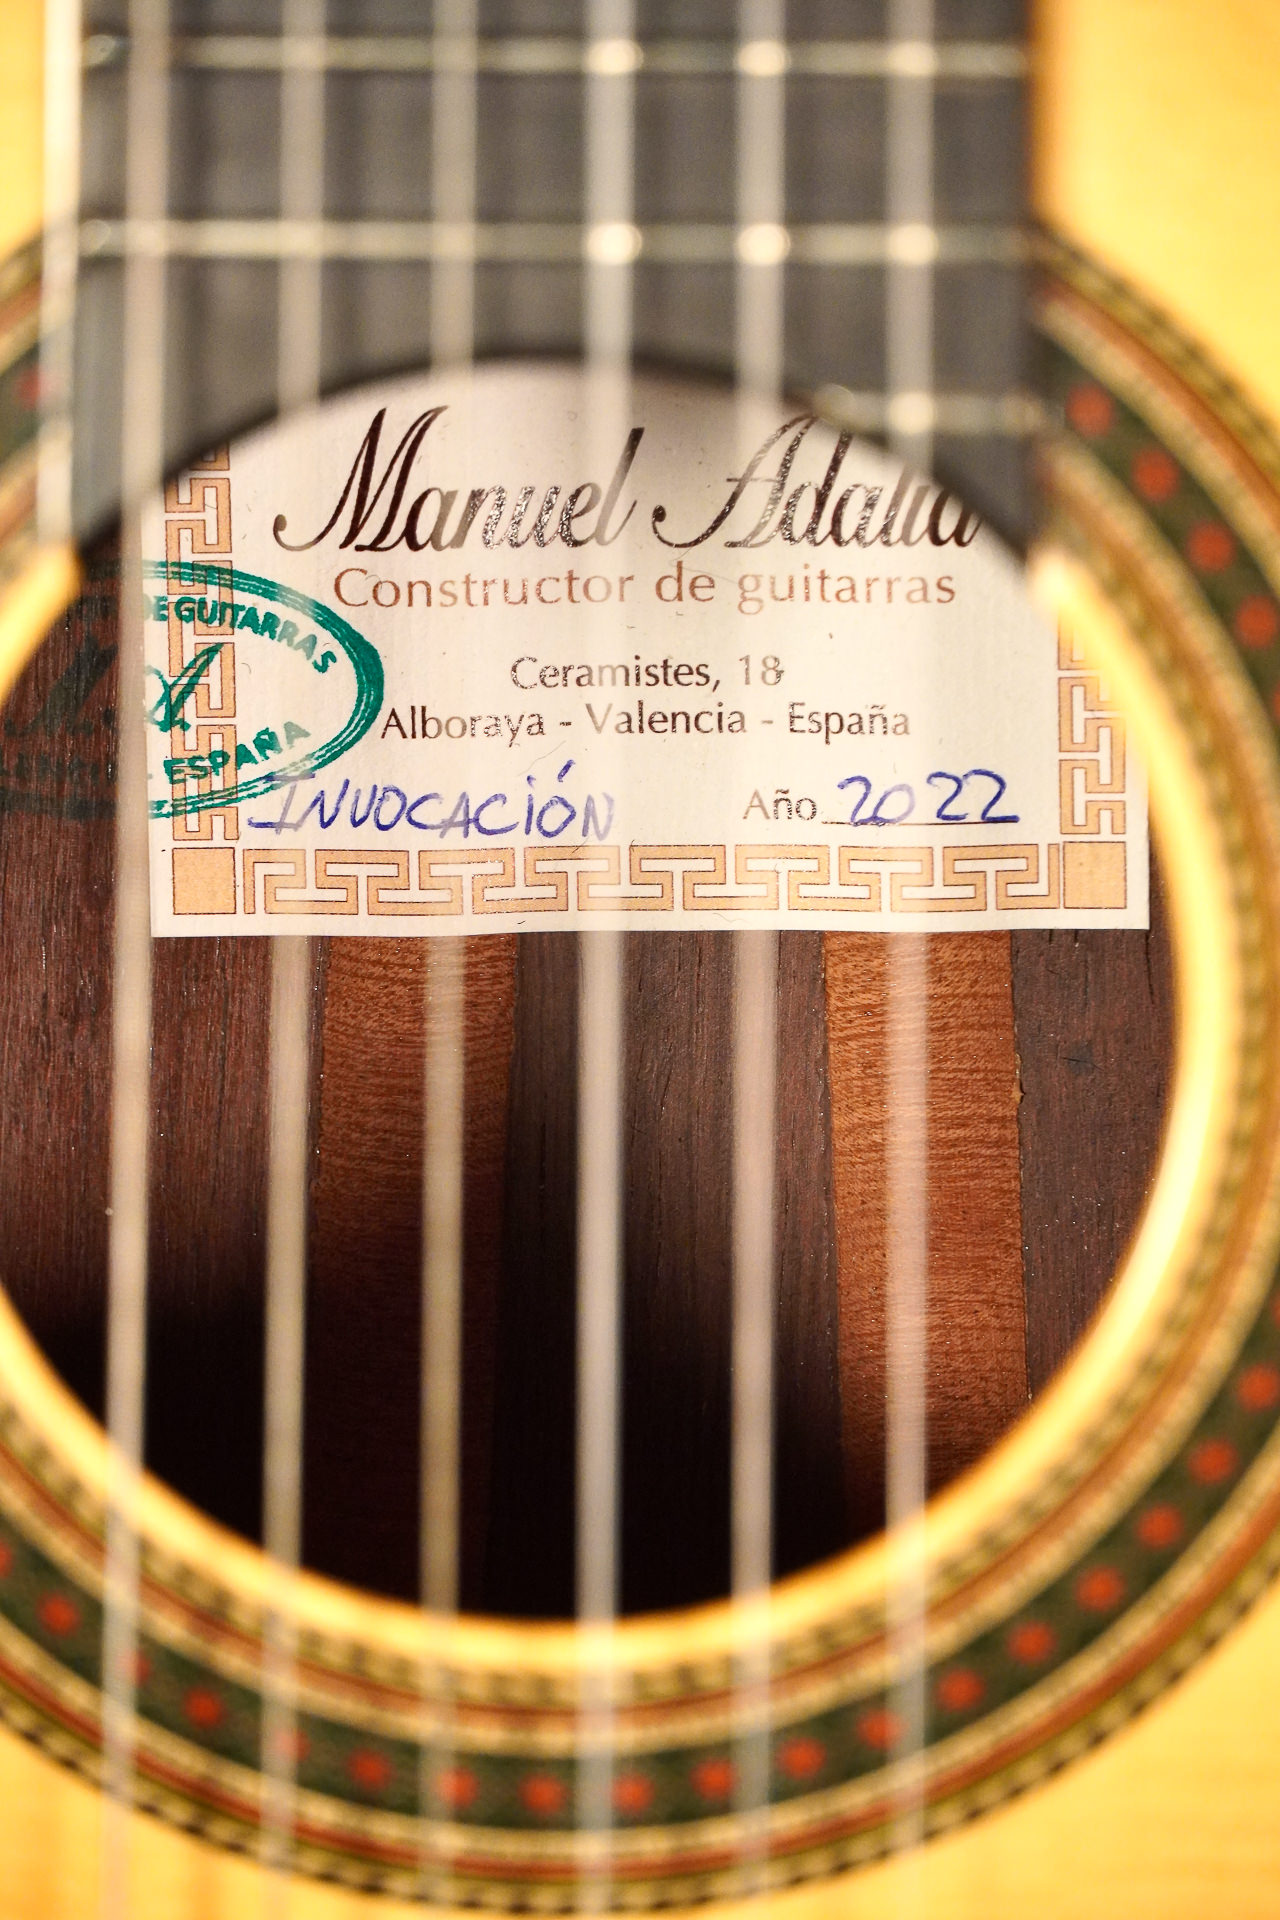 Manuel Adalid
Constructor de guitarras
Ceramistes, 18
Alboraya - Valencia - España
DE GUITARRAS
ESPAÑA
INVOCACIÓN
Año 2022